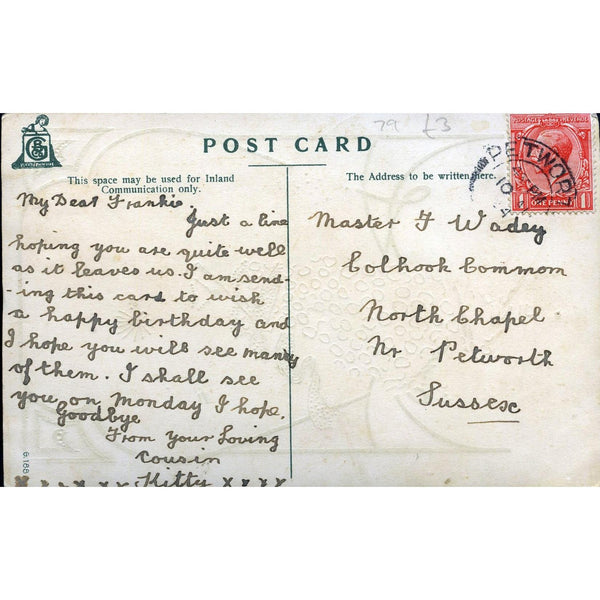 79 £3
POST CARD
This space may be used for Inland
Communication only.
The Address to be written here.
POSTAGE REVENUE
1 ONE PENNY 1
PETWORTH
10
My Dear Frankie.
Just a line
hoping you are quite well
as it leaves us. I am send-
-ing this card to wish
a happy birthday and
I hope you will see many
of them. I shall see
you on Monday I hope.
Goodbye
From your Loving
cousin
Kitty x x x x
Master F Wadey
Colhook Common
North Chapel
Nr Petworth
Sussex